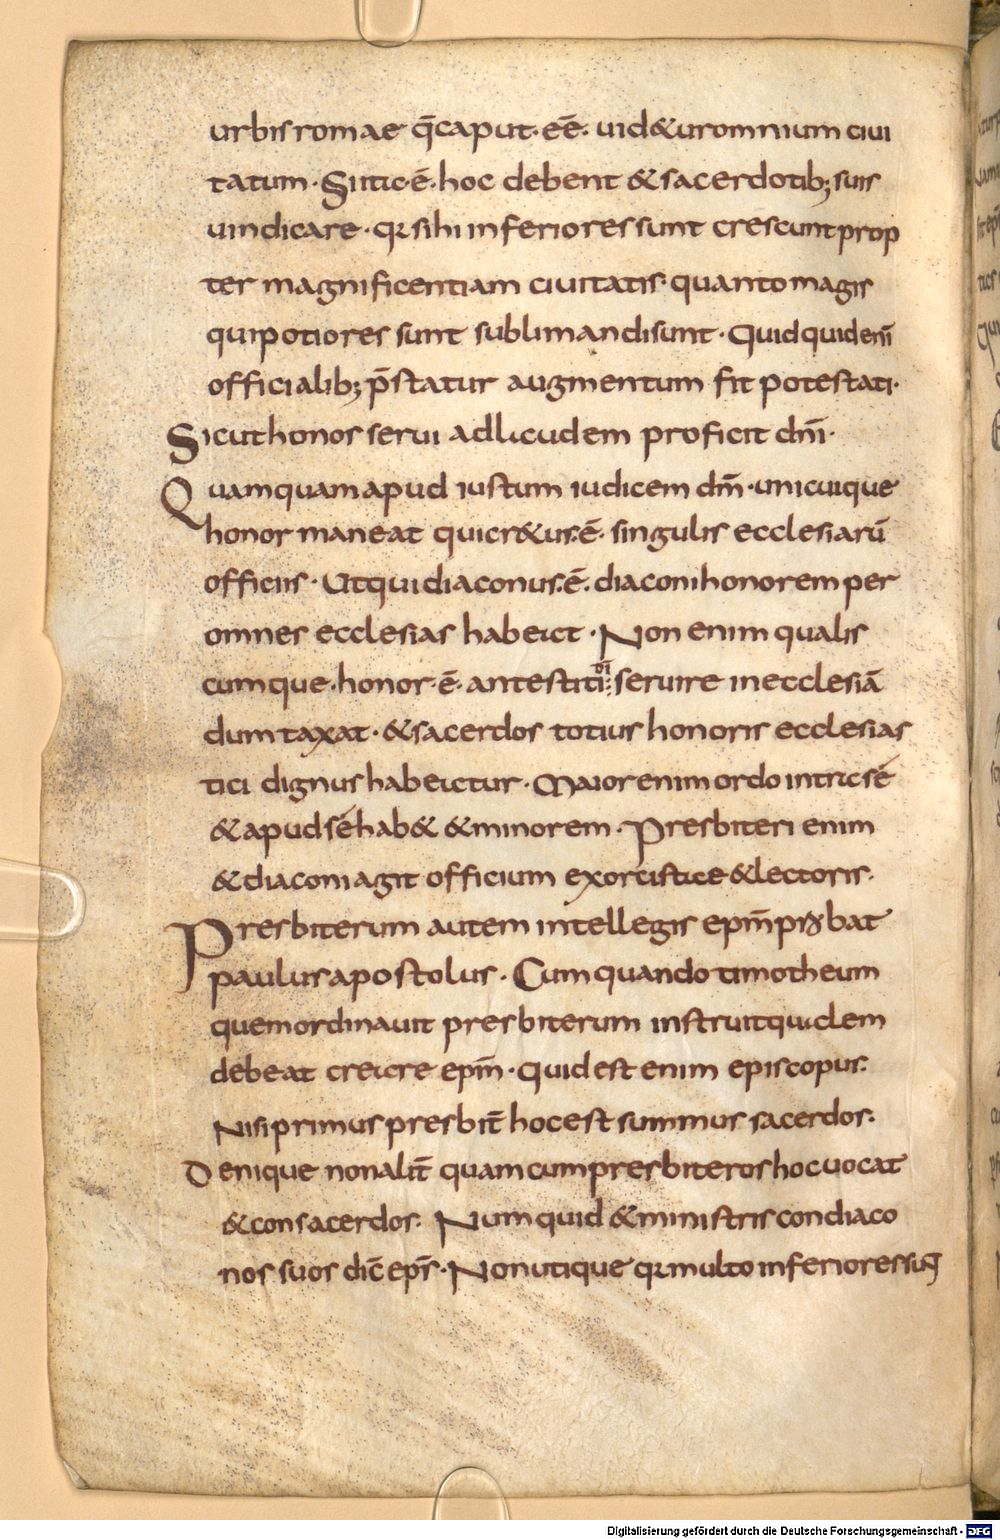 urbis romae q̄ caput· eē· uid&ur omnium ciui
tatum· Si itic· ē· hoc debent & sacerdotib; suis
uindicare· qr si hi inferiores sunt crescunt prop
ter magnificentiam ciuitatis· quanto magis
qui potiores sunt sublimandi sunt· Quidquid enī
officialib; p̄statur augmentum fit potestati·
Sicut honor serui ad laudem proficit dn̄i·
Quamquam apud iustum iudicem dm̄· unicuique
honor maneat qui cr&us· ē· singulis ecclesiarū
officiis· Ut qui diaconus· ē· diaconi honorem per
omnes ecclesias habeat· Non enim qualis
cumque· honor· ē· antestiti dī seruire in ecclesiā
dum taxat· & sacerdos totius honoris ecclesias
tici dignus habeatur· Maior enim ordo intra sé
& apud sé hab& & minorem· Presbiteri enim
& diaconi agit officium exorcistae & lectoris·
Presbiterum autem intellegis epm̄ probat
paulus apostolus· Cum quando timotheum
quem ordinauit presbiterum instruit qualem
debeat creare epm̄· quid est enim episcopus·
Nisi primus presbit̄ hoc est summus sacerdos·
Denique non alit̄ quam cumpresbiteros hoc uocat
& consacerdos· Numquid & ministris condiaco
nos suos dic̄ ep̄s· Non utique qr multo inferiores sunt